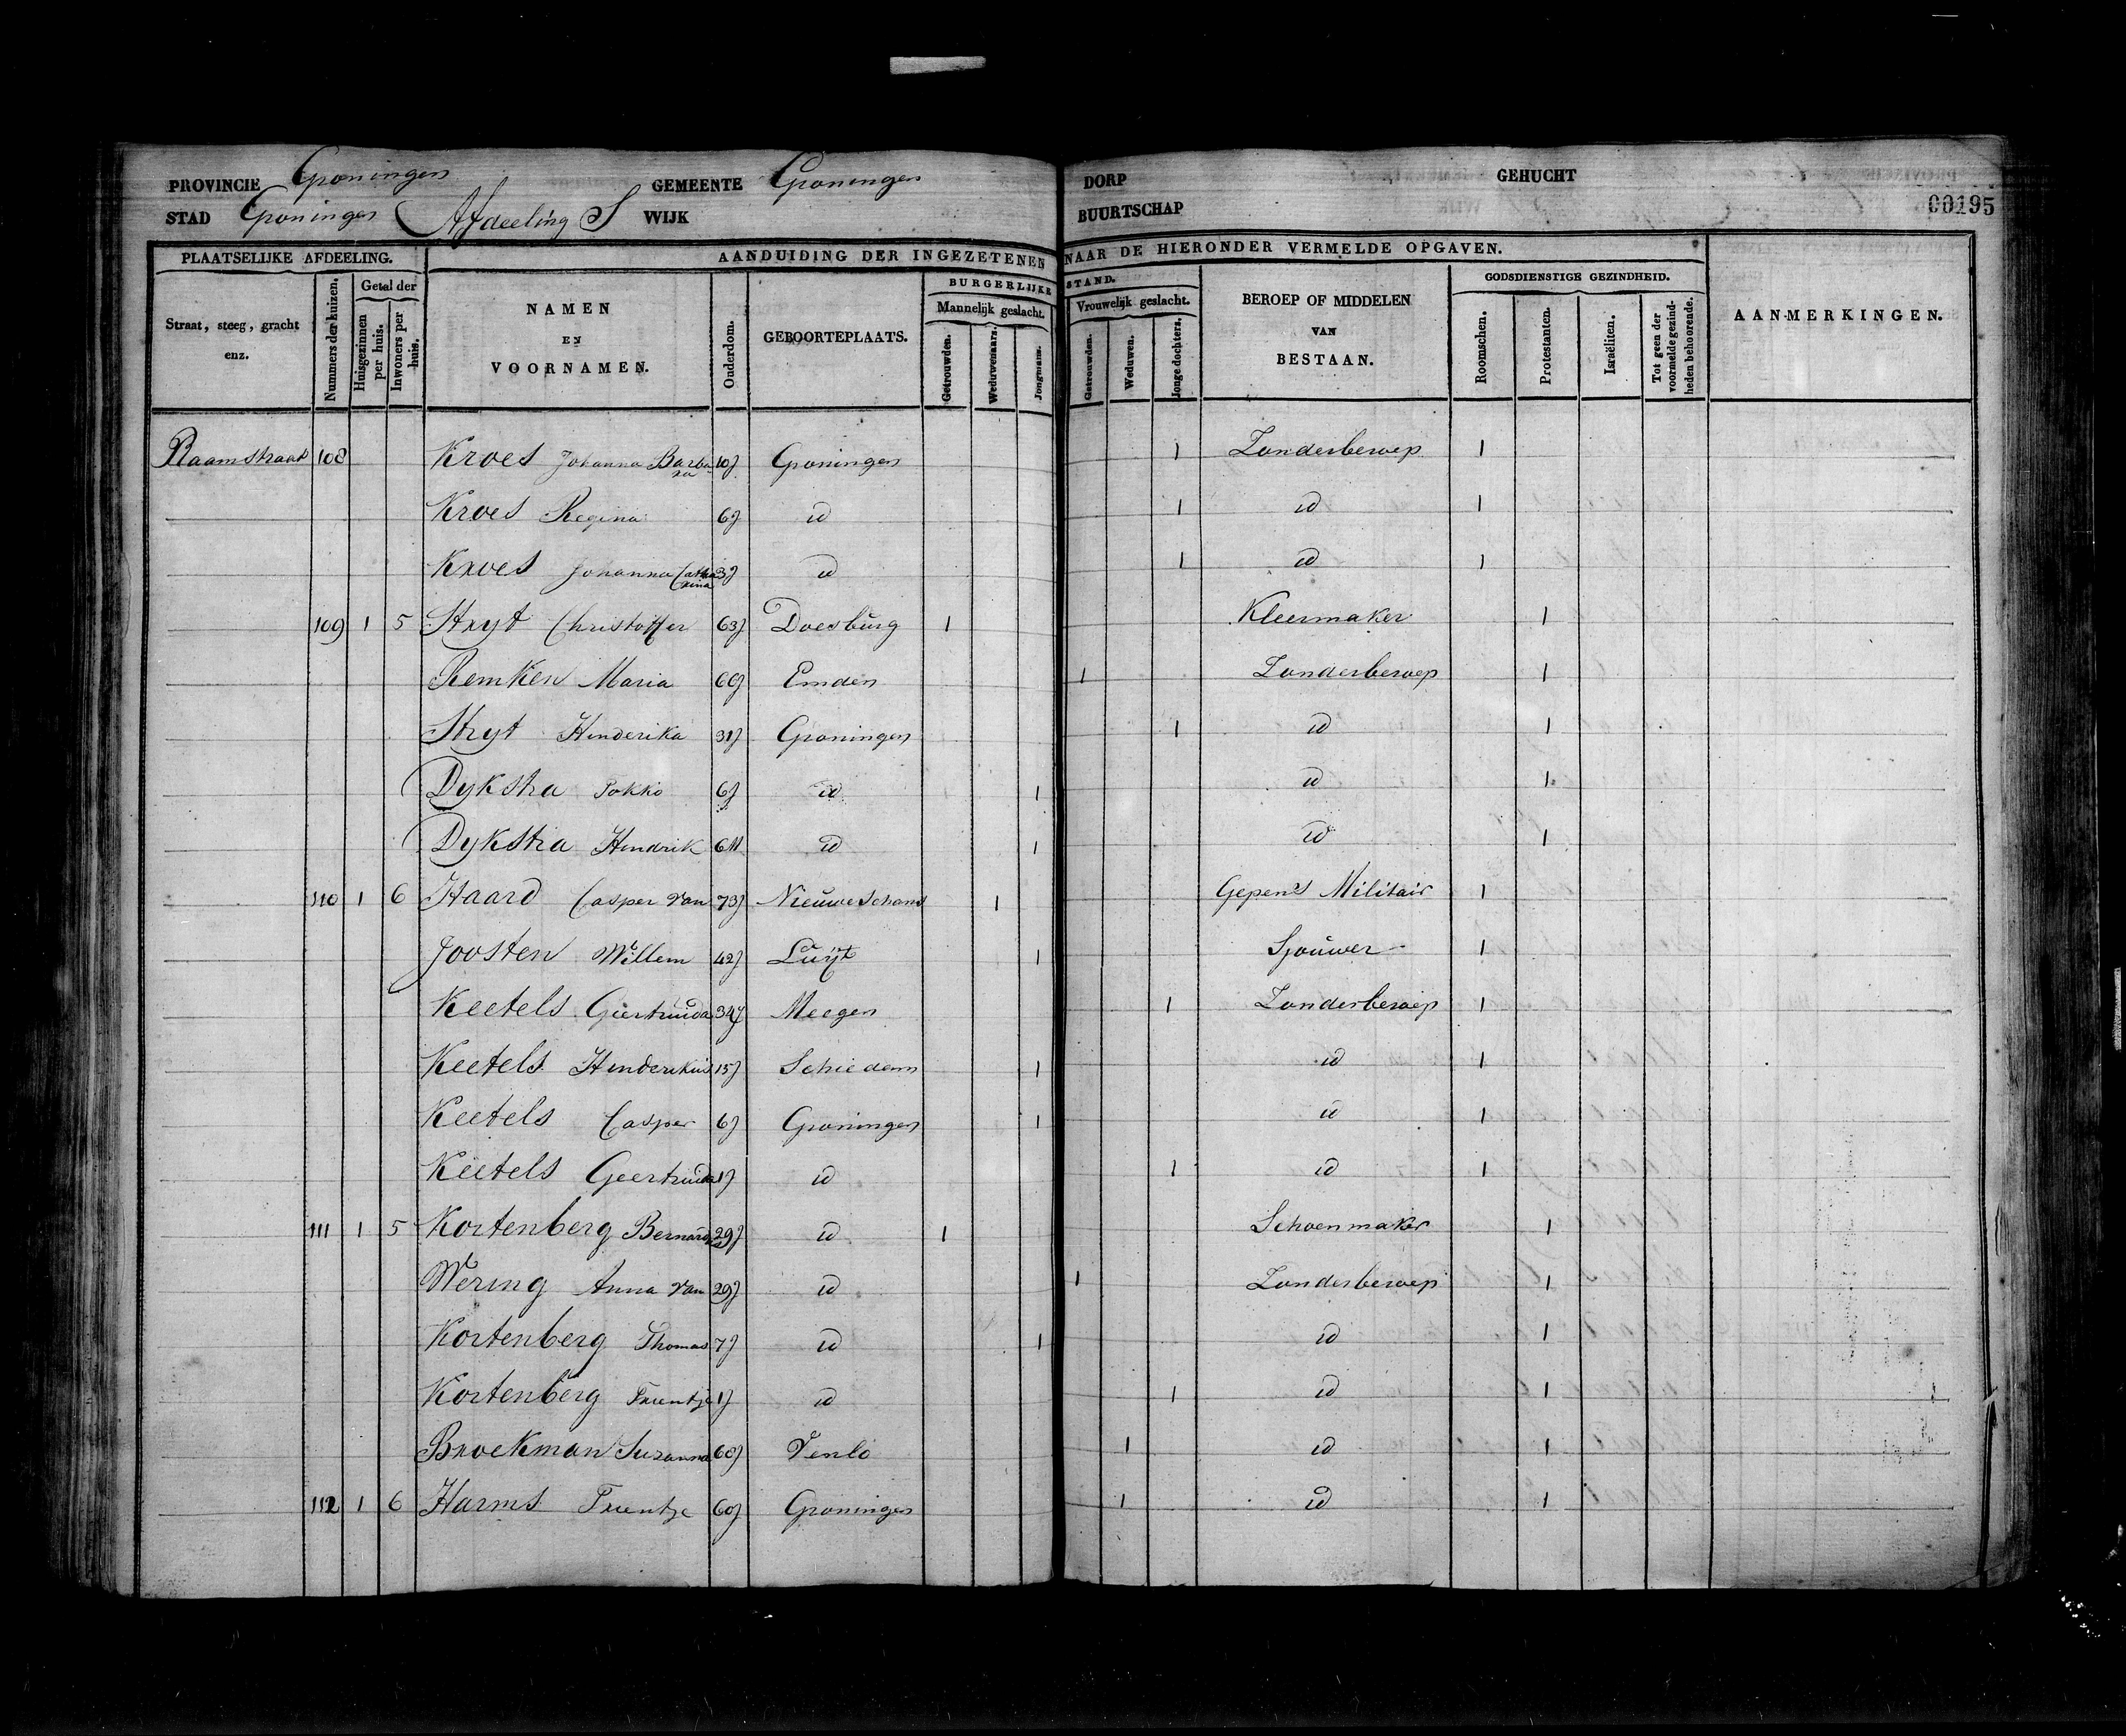 PROVINCIE Groningen GEMEENTE Groningen DORP GEHUCHT
STAD Groningen Afdeeling S WIJK BUURTSCHAP 00195
PLAATSELIJKE AFDEELING. AANDUIDING DER INGEZETENEN NAAR DE HIERONDER VERMELDE OPGAVEN.
Straat, steeg, gracht enz.
Nummers der huizen.
Getal der
Huisgezinnen per huis.
Inwoners per huis.
NAMEN
EN
VOORNAMEN.
Ouderdom.
GEBOORTEPLAATS.
BURGERLIJKE STAND.
Mannelijk geslacht.
Getrouwden.
Weduwenaars.
Jongmans.
Vrouwelijk geslacht.
Getrouwden.
Weduwen.
Jonge dochters.
BEROEP OF MIDDELEN
VAN
BESTAAN.
GODSDIENSTIGE GEZINDHEID.
Roomschen.
Protestanten.
Israëliten.
Tot geen der voormelde gezindheden behoorende.
AANMERKINGEN.
Raamstraat 108 Kroes Johanna Barbara 10j Groningen 1 Zonderberoep 1
Kroes Regina 6j id 1 id 1
Kroes Johanna Catharina 3j id 1 id 1
109 1 5 Stryt Christoffer 63j Doesburg 1 Kleermaker 1
Remken Maria 60j Emden 1 Zonderberoep 1
Stryt Hinderika 31j Groningen 1 id 1
Dykstra Pokko 6j id 1 id 1
Dykstra Hindrik 6M id 1 id 1
110 1 6 Haard Casper van 73j Nieuweschans 1 Gepens Militair 1
Joosten Willem 42j Luijt 1 Sjouwer 1
Keetels Geertruida 34j Meegen 1 Zonderberoep 1
Keetels Hinderikus 15j Schiedam 1 id 1
Keetels Casper 6j Groningen 1 id 1
Keetels Geertruida 1j id 1 id 1
111 1 5 Kortenberg Bernardus 29j id 1 Schoenmaker 1
Wering Anna van 29j id 1 Zonderberoep 1
Kortenberg Thomas 7j id 1 id 1
Kortenberg Trientje 1j id 1 id 1
Broekman Suzanna 60j Venlo 1 id 1
112 1 6 Harms Trientje 60j Groningen 1 id 1